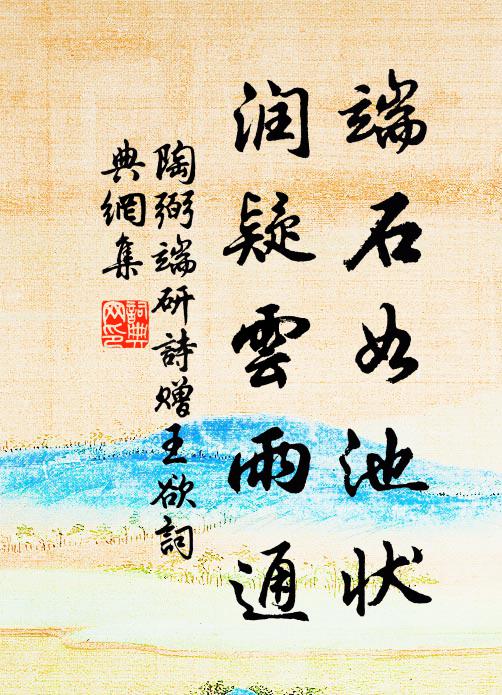 端石如池状
润疑雲雨通
陶弼端研詩赠王欲詞
典網集
詞典网印